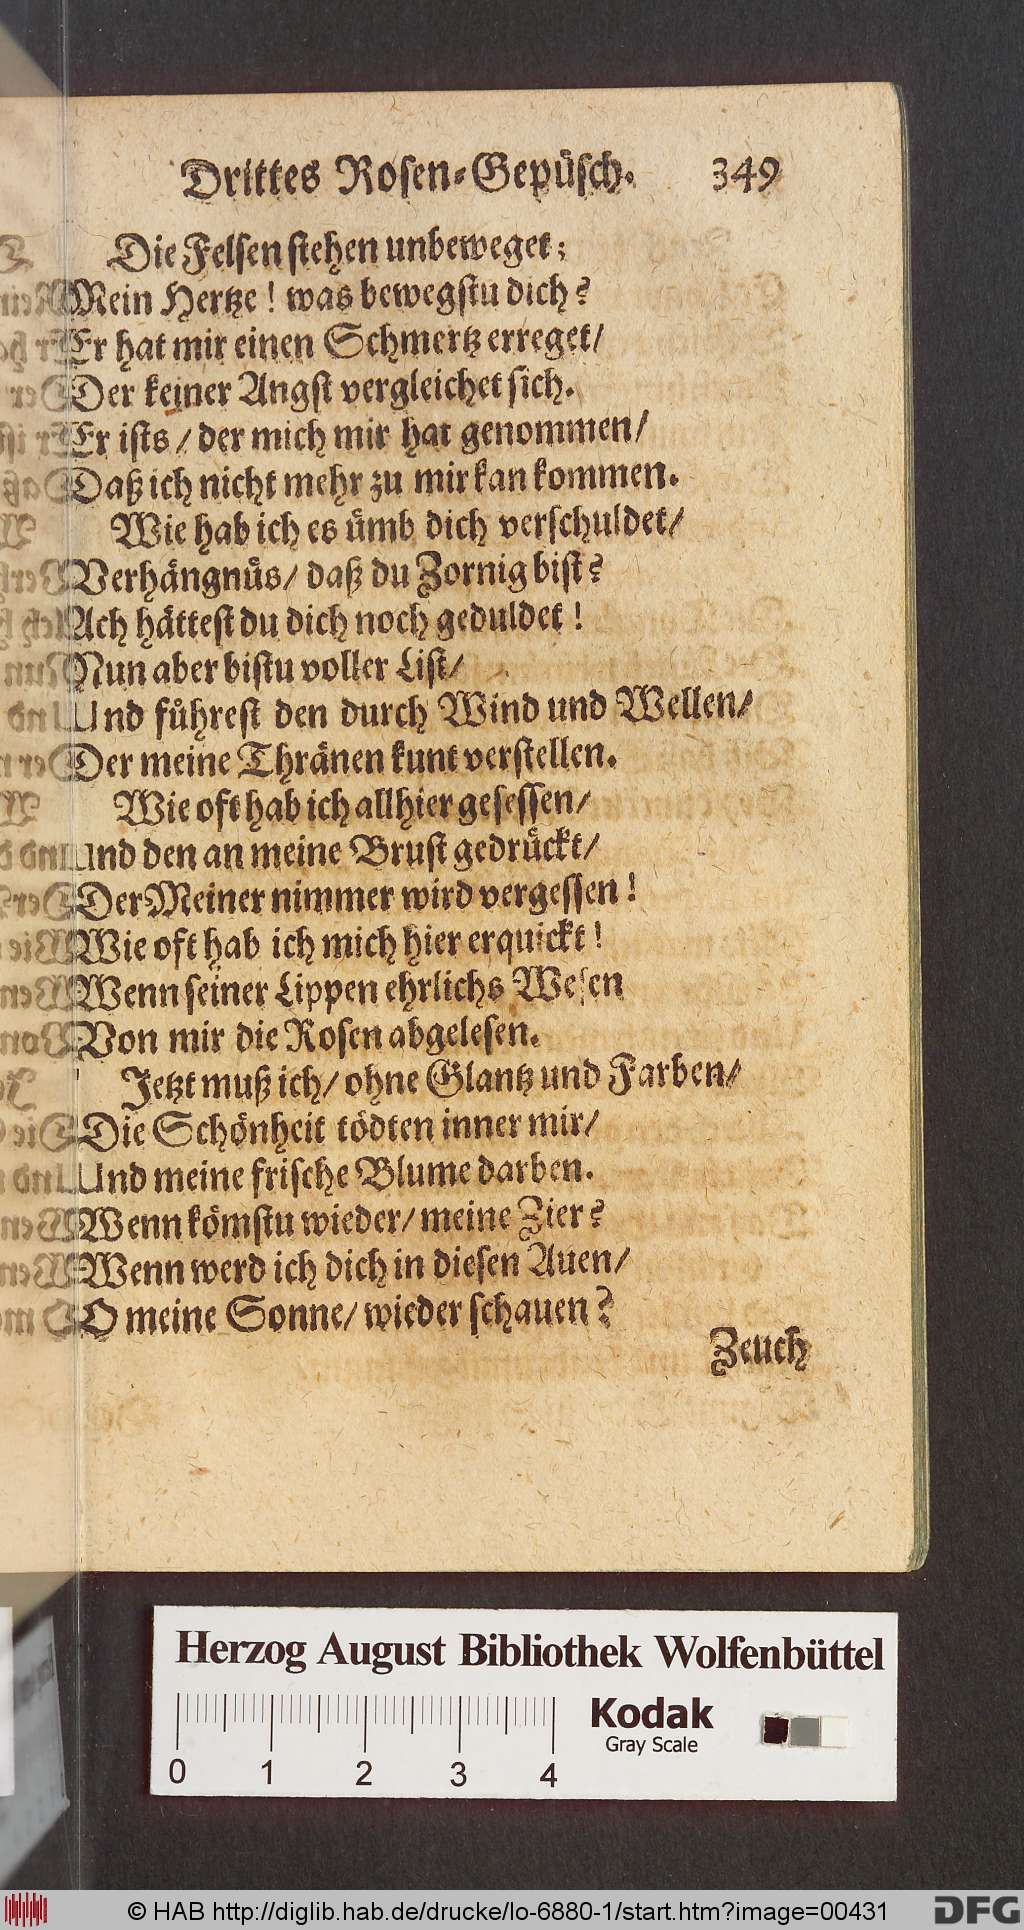 Drittes Rosen-Gepüsch. 349
Die Felsen stehen unbeweget;
Mein Hertze! was bewegstu dich?
Er hat mir einen Schmertz erreget/
Der keiner Angst vergleichet sich.
Er ists/ der mich mir hat genommen/
Daß ich nicht mehr zu mir kan kommen.
Wie hab ich es ümb dich verschuldet/
Verhängnüs/ daß du Zornig bist?
Ach hättest du dich noch geduldet!
Nun aber bistu voller List/
Und führest den durch Wind und Wellen/
Der meine Thränen kunt verstellen.
Wie oft hab ich allhier gesessen/
und den an meine Brust gedrückt/
Der Meiner nimmer wird vergessen!
Wie oft hab ich mich hier erquickt!
Wenn seiner Lippen ehrlichs Wesen
Von mir die Rosen abgelesen.
Jetzt muß ich/ ohne Glantz und Farben/
Die Schönheit tödten inner mir/
Und meine frische Blume darben.
Wenn kömstu wieder/ meine Zier?
Wenn werd ich dich in diesen Auen/
O meine Sonne/ wieder schauen?
Zeuch
Herzog August Bibliothek Wolfenbüttel
Kodak
Gray Scale
0 1 2 3 4
© HAB http://diglib.hab.de/drucke/lo-6880-1/start.htm?image=00431
DFG